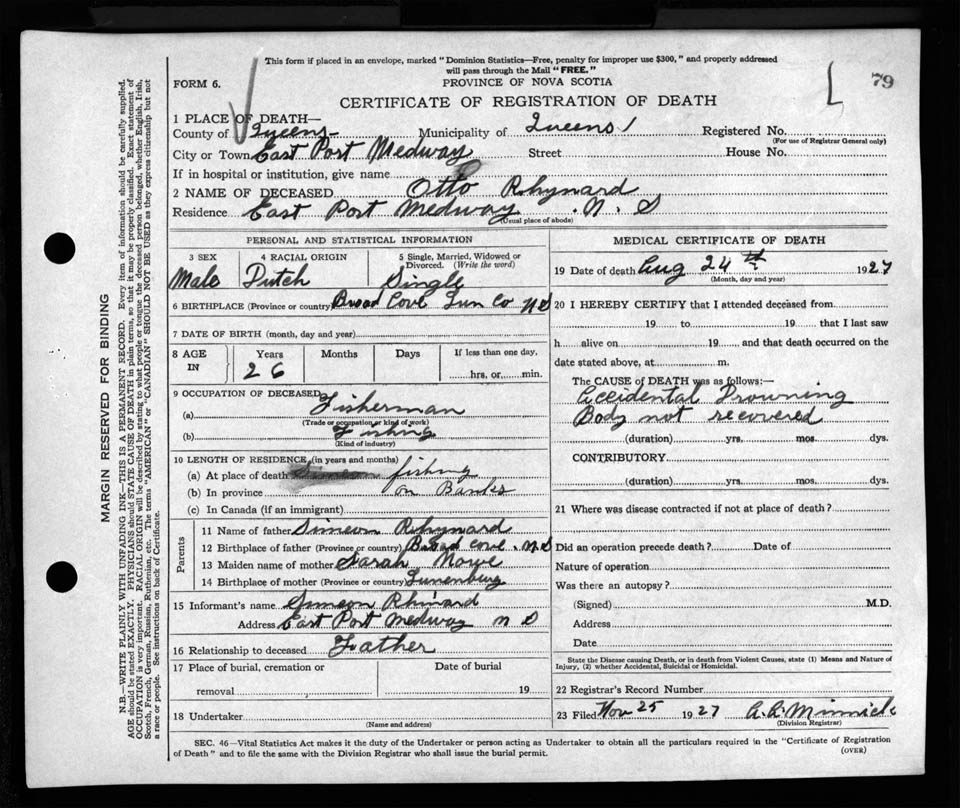 This form if placed in an envelope, marked "Dominion Statistics—Free, penalty for improper use $300," and properly addressed
will pass through the Mail "FREE."
79
FORM 6.
PROVINCE OF NOVA SCOTIA
CERTIFICATE OF REGISTRATION OF DEATH
1 PLACE OF DEATH—
County of Queens Municipality of Queens Registered No.
(For use of Registrar General only)
City or Town East Port Medway Street House No.
If in hospital or institution, give name
2 NAME OF DECEASED Otto Rhynard
Residence East Port Medway . N. S
(Usual place of abode)
PERSONAL AND STATISTICAL INFORMATION
3 SEX 4 RACIAL ORIGIN 5 Single, Married, Widowed or
Divorced. (Write the word)
Male Dutch Single
6 BIRTHPLACE (Province or country) Broad Cove Lun Co N S
7 DATE OF BIRTH (month, day and year)
8 AGE IN Years Months Days If less than one day,
26 hrs, or min.
9 OCCUPATION OF DECEASED
(a) Fisherman
(Trade or occupation or kind of work)
(b) Fishing
(Kind of industry)
10 LENGTH OF RESIDENCE (in years and months)
(a) At place of death fishing
(b) In province on Banks
(c) In Canada (if an immigrant)
Parents
11 Name of father Simeon Rhynard
12 Birthplace of father (Province or country) Broad Cove . N. S
13 Maiden name of mother Sarah
14 Birthplace of mother (Province or country) Lunenburg
15 Informant's name Simeon Rhinard
Address East Port Medway N S
16 Relationship to deceased Father
17 Place of burial, cremation or Date of burial
removal 19
18 Undertaker
(Name and address)
MEDICAL CERTIFICATE OF DEATH
19 Date of death Aug 24th 1927
(Month, day and year)
20 I HEREBY CERTIFY that I attended deceased from
19 to 19 that I last saw
h alive on 19 and that death occurred on the
date stated above, at m.
The CAUSE OF DEATH was as follows:—
Accidental Drowning
Body not recovered
(duration) yrs. mos. dys.
CONTRIBUTORY
(duration) yrs. mos. dys.
21 Where was disease contracted if not at place of death?
Did an operation precede death? Date of
Nature of operation
Was there an autopsy?
(Signed) M.D.
Address
Date
State the Disease causing Death, or in death from Violent Causes, state (1) Means and Nature of
Injury, (2) whether Accidental, Suicidal or Homicidal.
22 Registrar's Record Number
23 Filed Nov 25 1927 A. R. Minnick
(Division Registrar)
SEC. 46—Vital Statistics Act makes it the duty of the Undertaker or person acting as Undertaker to obtain all the particulars required in the "Certificate of Registration
of Death" and to file the same with the Division Registrar who shall issue the burial permit.
(OVER)
MARGIN RESERVED FOR BINDING
N.B.—WRITE PLAINLY WITH UNFADING INK—THIS IS A PERMANENT RECORD. Every item of information should be carefully supplied.
AGE should be stated EXACTLY. PHYSICIANS should STATE CAUSE OF DEATH in plain terms, so that it may be properly classified. Exact statement of
OCCUPATION is very important. RACIAL ORIGIN will be described by stating to what people or tongue the deceased person belonged, whether English, Irish,
Scotch, French, German, Russian, Ruthenian, etc. The terms "AMERICAN" or "CANADIAN" SHOULD NOT BE USED as they express citizenship but not
a race or people. See instructions on back of Certificate.